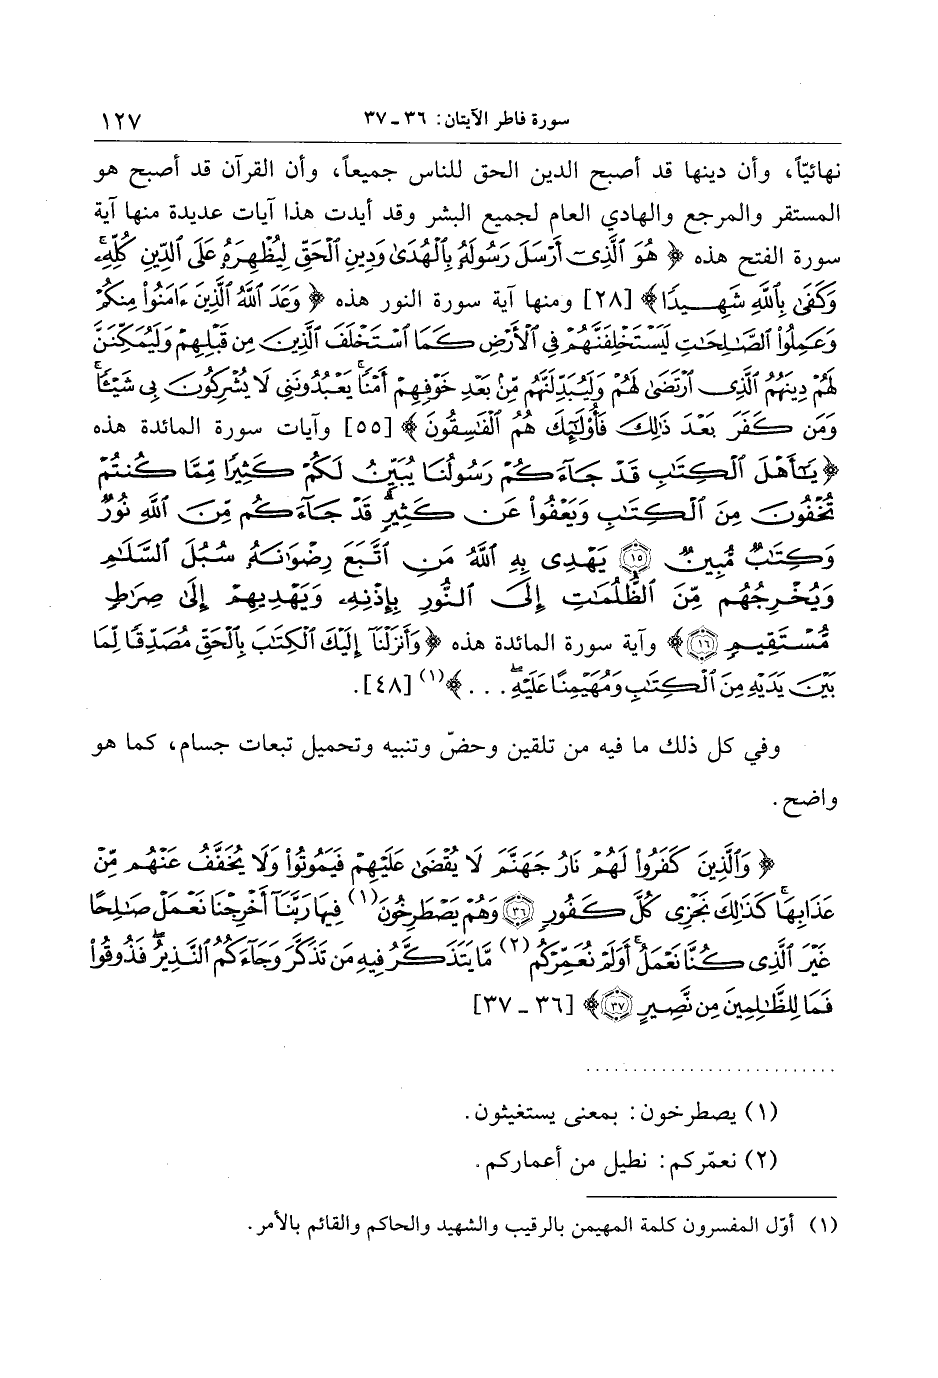 سورة فاطر الآيتان: ٣٦ ـ ٣٧ ١٢٧
نهائيّاً، وأن دينها قد أصبح الدين الحق للناس جميعاً، وأن القرآن قد أصبح هو
المستقر والمرجع والهادي العام لجميع البشر وقد أيدت هذا آيات عديدة منها آية
سورة الفتح هذه ﴿ هُوَ ٱلَّذِىٓ أَرْسَلَ رَسُولَهُۥ بِٱلْهُدَىٰ وَدِينِ ٱلْحَقِّ لِيُظْهِرَهُۥ عَلَى ٱلدِّينِ كُلِّهِۦۚ
وَكَفَىٰ بِٱللَّهِ شَهِيدًا﴾ [٢٨] ومنها آية سورة النور هذه ﴿ وَعَدَ ٱللَّهُ ٱلَّذِينَ ءَامَنُوا۟ مِنكُمْ
وَعَمِلُوا۟ ٱلصَّٰلِحَٰتِ لَيَسْتَخْلِفَنَّهُمْ فِى ٱلْأَرْضِ كَمَا ٱسْتَخْلَفَ ٱلَّذِينَ مِن قَبْلِهِمْ وَلَيُمَكِّنَنَّ
لَهُمْ دِينَهُمُ ٱلَّذِى ٱرْتَضَىٰ لَهُمْ وَلَيُبَدِّلَنَّهُم مِّنۢ بَعْدِ خَوْفِهِمْ أَمْنًاۚ يَعْبُدُونَنِى لَا يُشْرِكُونَ بِى شَيْـًٔاۚ
وَمَن كَفَرَ بَعْدَ ذَٰلِكَ فَأُو۟لَٰٓئِكَ هُمُ ٱلْفَٰسِقُونَ﴾ [٥٥] وآيات سورة المائدة هذه
﴿يَٰٓأَهْلَ ٱلْكِتَٰبِ قَدْ جَآءَكُمْ رَسُولُنَا يُبَيِّنُ لَكُمْ كَثِيرًا مِّمَّا كُنتُمْ
تُخْفُونَ مِنَ ٱلْكِتَٰبِ وَيَعْفُوا۟ عَن كَثِيرٍۚ قَدْ جَآءَكُم مِّنَ ٱللَّهِ نُورٌ
وَكِتَٰبٌ مُّبِينٌ ١٥ يَهْدِى بِهِ ٱللَّهُ مَنِ ٱتَّبَعَ رِضْوَٰنَهُۥ سُبُلَ ٱلسَّلَٰمِ
وَيُخْرِجُهُم مِّنَ ٱلظُّلُمَٰتِ إِلَى ٱلنُّورِ بِإِذْنِهِۦ وَيَهْدِيهِمْ إِلَىٰ صِرَٰطٍ
مُّسْتَقِيمٍ ١٦﴾ وآية سورة المائدة هذه ﴿وَأَنزَلْنَآ إِلَيْكَ ٱلْكِتَٰبَ بِٱلْحَقِّ مُصَدِّقًا لِّمَا
بَيْنَ يَدَيْهِ مِنَ ٱلْكِتَٰبِ وَمُهَيْمِنًا عَلَيْهِۖ . . . ﴾(١) [٤٨].
وفي كل ذلك ما فيه من تلقين وحضّ وتنبيه وتحميل تبعات جسام، كما هو
واضح.
﴿ وَٱلَّذِينَ كَفَرُوا۟ لَهُمْ نَارُ جَهَنَّمَ لَا يُقْضَىٰ عَلَيْهِمْ فَيَمُوتُوا۟ وَلَا يُخَفَّفُ عَنْهُم مِّنْ
عَذَابِهَاۚ كَذَٰلِكَ نَجْزِى كُلَّ كَفُورٍ ٣٦ وَهُمْ يَصْطَرِخُونَ(١) فِيهَا رَبَّنَآ أَخْرِجْنَا نَعْمَلْ صَٰلِحًا
غَيْرَ ٱلَّذِى كُنَّا نَعْمَلُۚ أَوَلَمْ نُعَمِّرْكُم(٢) مَّا يَتَذَكَّرُ فِيهِ مَن تَذَكَّرَ وَجَآءَكُمُ ٱلنَّذِيرُۖ فَذُوقُوا۟
فَمَا لِلظَّٰلِمِينَ مِن نَّصِيرٍ ٣٧﴾ [٣٦ ـ ٣٧]
. . . . . . . . . . . . . . . . . . . . . . . . .
(١) يصطرخون: بمعنى يستغيثون.
(٢) نعمّركم: نطيل من أعماركم.
(١) أوّل المفسرون كلمة المهيمن بالرقيب والشهيد والحاكم والقائم بالأمر.